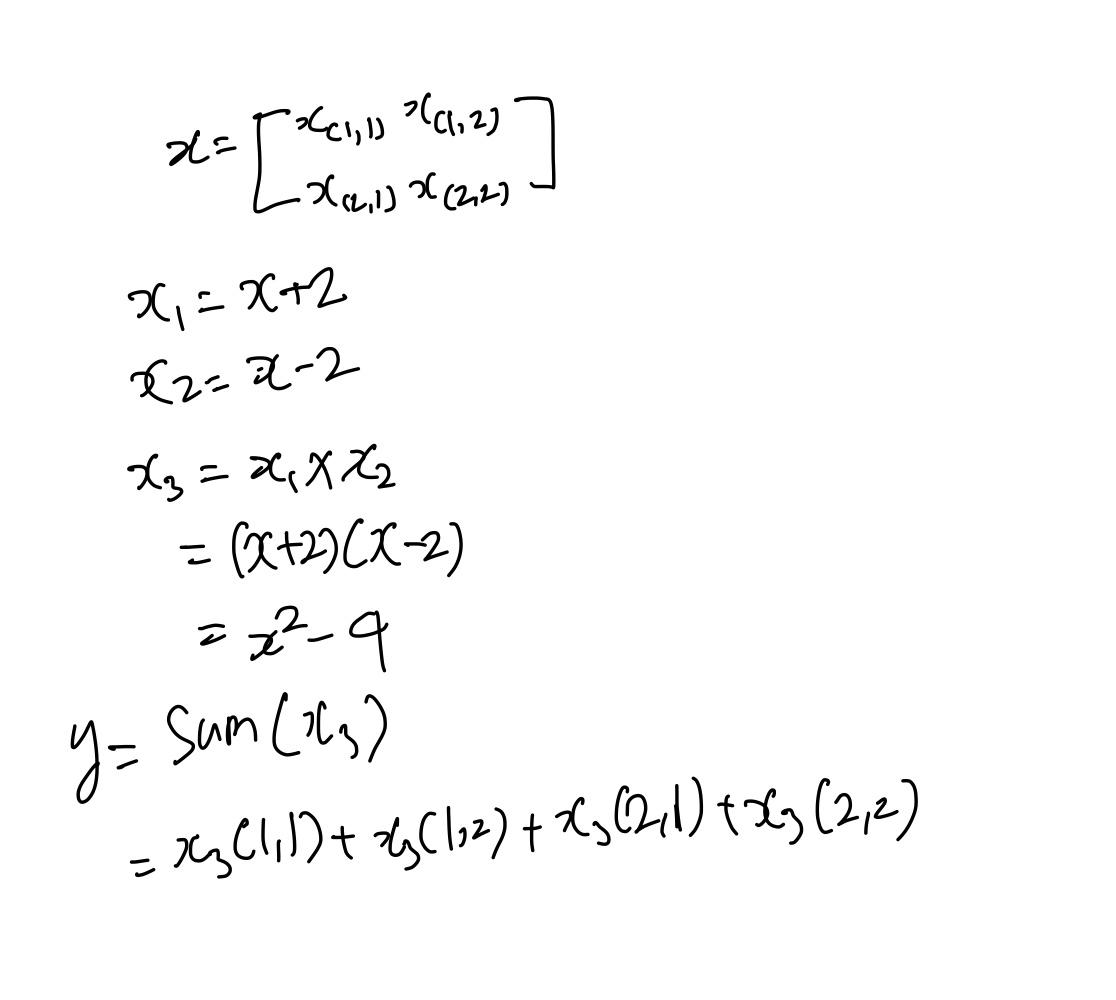 x = [ x(1,1) x(1,2)
x(2,1) x(2,2) ]
x₁ = x+2
x₂ = x-2
x₃ = x₁ × x₂
= (x+2)(x-2)
= x² - 4
y = Sum(x₃)
= x₃(1,1) + x₃(1,2) + x₃(2,1) + x₃(2,2)